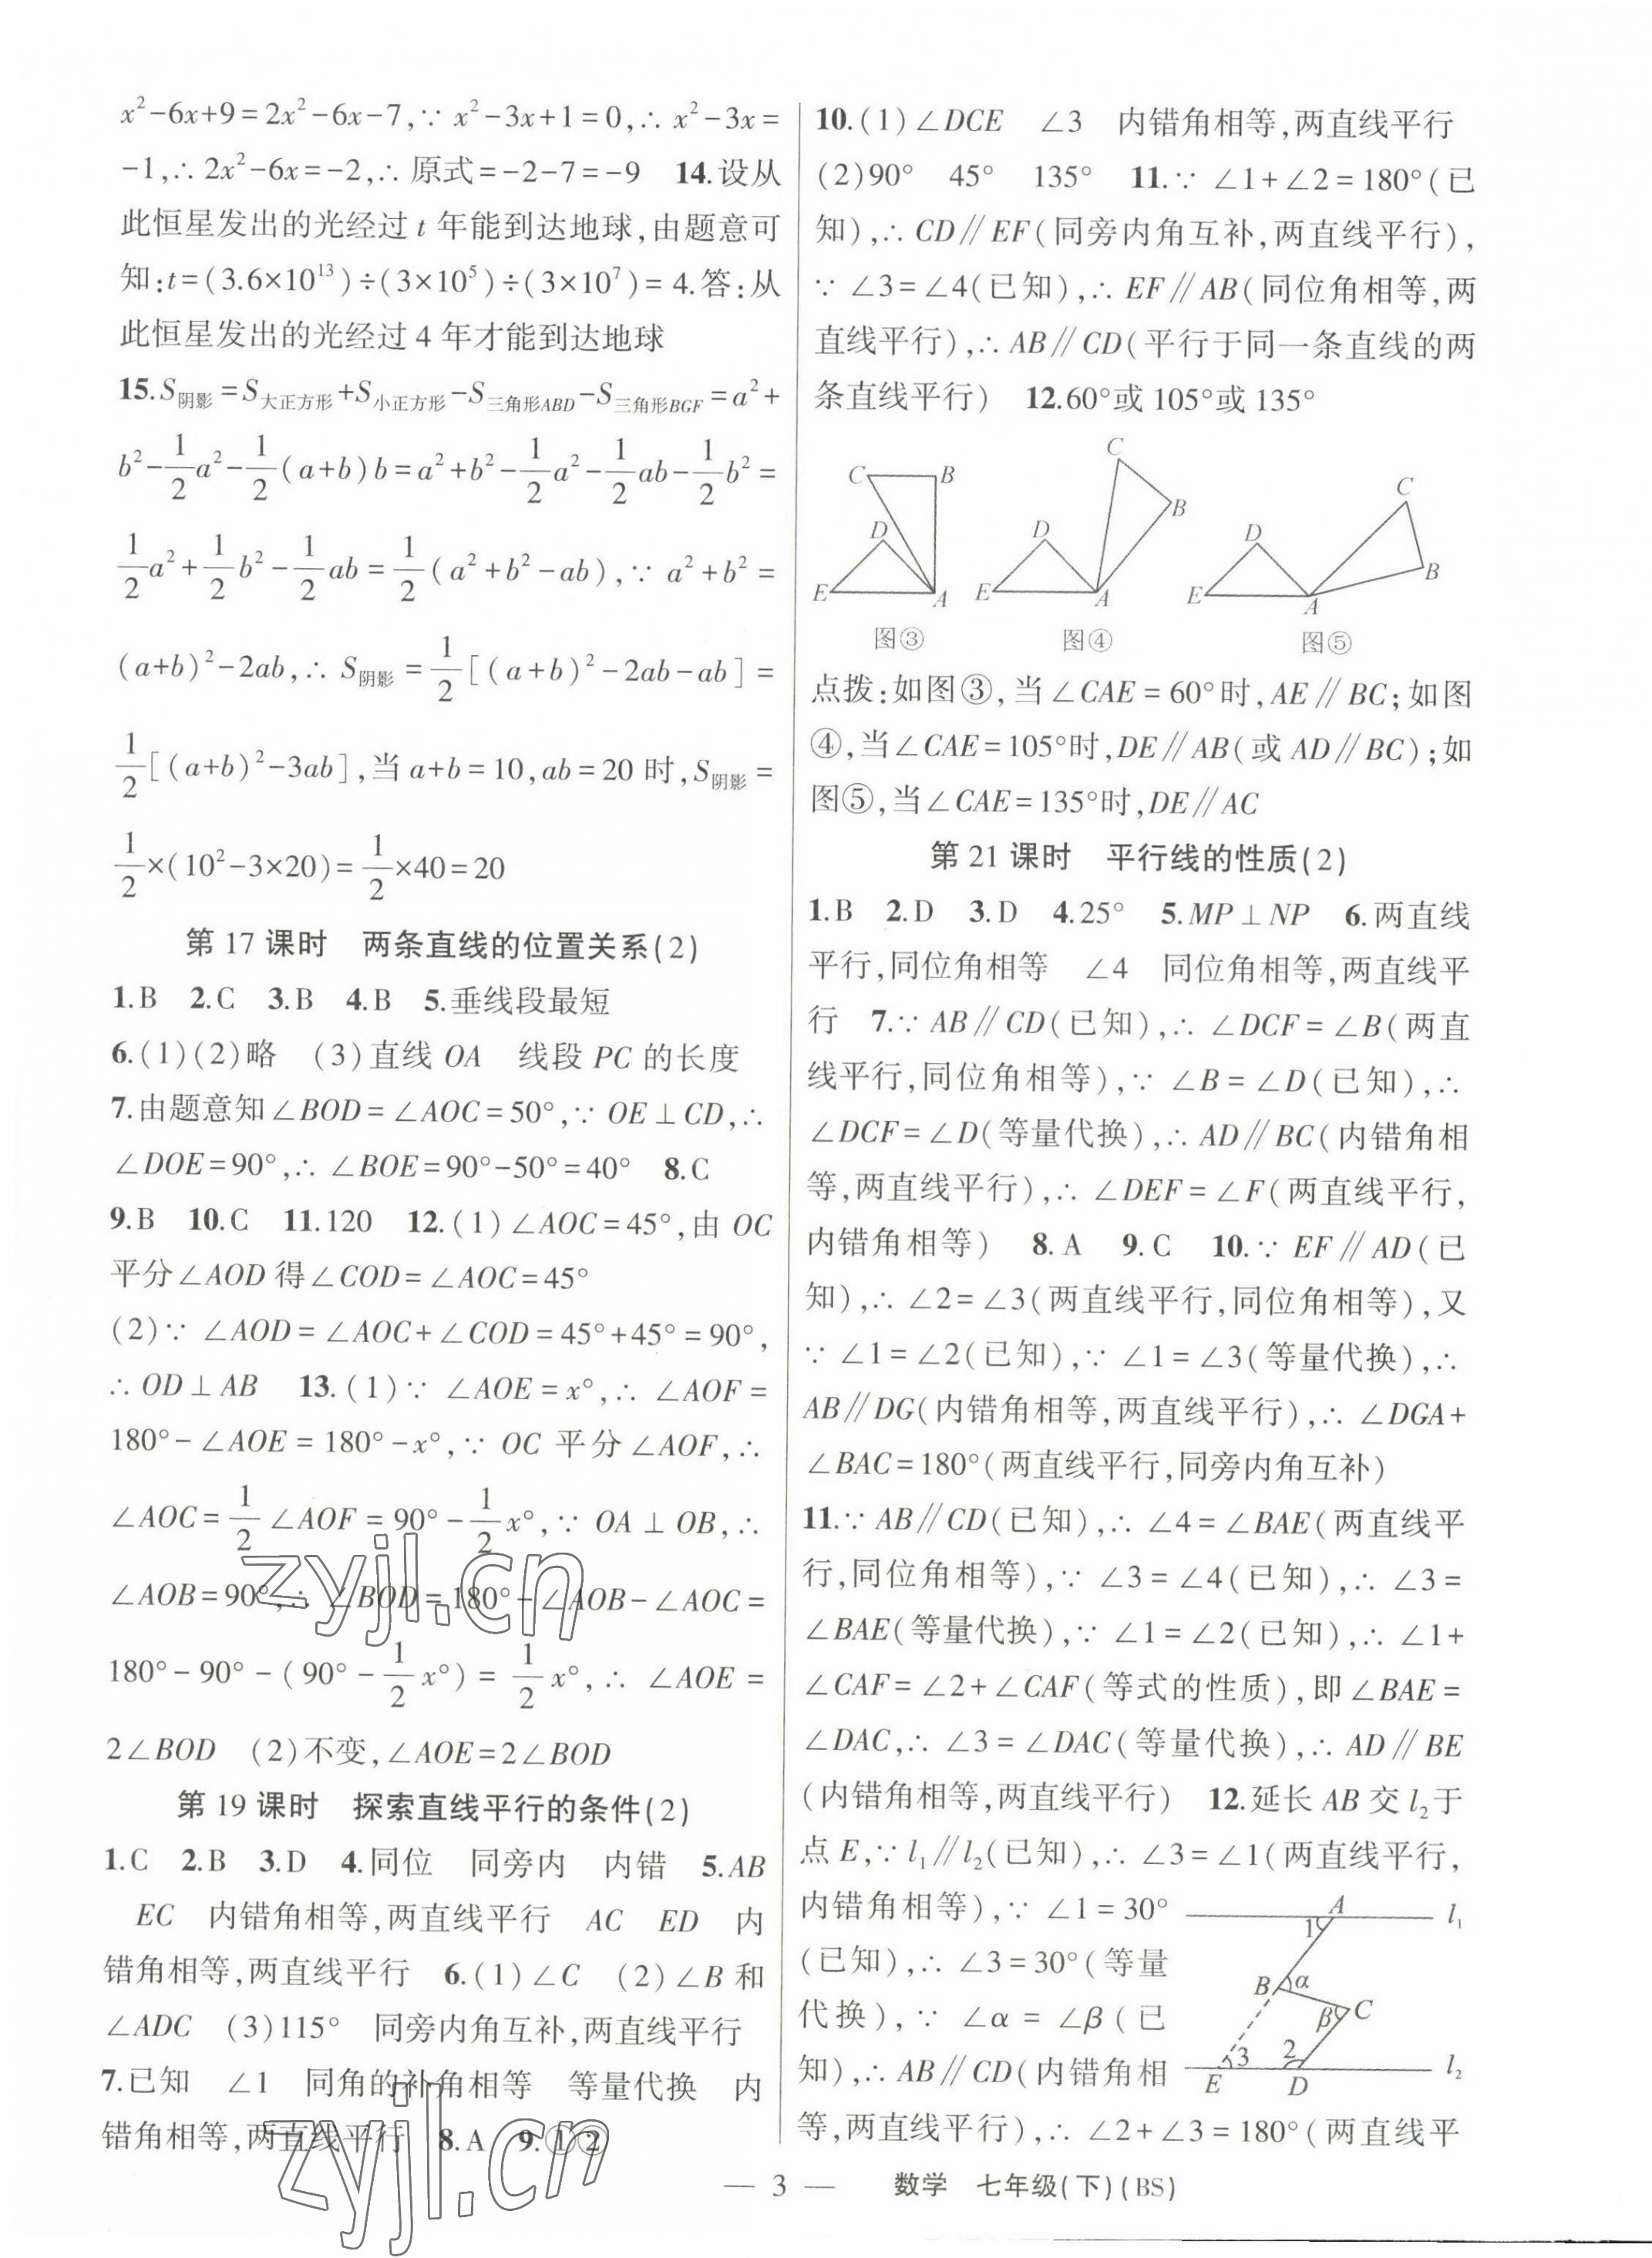 x²-6x+9=2x²-6x-7,∵ x²-3x+1=0,∴ x²-3x=
-1,∴ 2x²-6x=-2,∴ 原式=-2-7=-9　14.设从
此恒星发出的光经过 t 年能到达地球,由题意可
知:t=(3.6×10¹³)÷(3×10⁵)÷(3×10⁷)=4.答:从
此恒星发出的光经过 4 年才能到达地球
15.S阴影=S大正方形+S小正方形-S三角形ABD-S三角形BGF=a²+
b²-1/2a²-1/2(a+b)b=a²+b²-1/2a²-1/2ab-1/2b²=
1/2a²+1/2b²-1/2ab=1/2(a²+b²-ab),∵ a²+b²=
(a+b)²-2ab,∴ S阴影=1/2[(a+b)²-2ab-ab]=
1/2[(a+b)²-3ab],当 a+b=10,ab=20 时,S阴影=
1/2×(10²-3×20)=1/2×40=20
第 17 课时　两条直线的位置关系(2)
1.B　2.C　3.B　4.B　5.垂线段最短
6.(1)(2)略　(3)直线 OA　线段 PC 的长度
7.由题意知∠BOD=∠AOC=50°,∵ OE⊥CD,∴
∠DOE=90°,∴ ∠BOE=90°-50°=40°　8.C
9.B　10.C　11.120　12.(1)∠AOC=45°,由 OC
平分∠AOD 得∠COD=∠AOC=45°
(2)∵ ∠AOD=∠AOC+∠COD=45°+45°=90°,
∴ OD⊥AB　13.(1)∵ ∠AOE=x°,∴ ∠AOF=
180°-∠AOE=180°-x°,∵ OC 平分∠AOF,∴
∠AOC=1/2∠AOF=90°-1/2x°,∵ OA⊥OB,∴
∠AOB=90°,∴ ∠BOD=180°-∠AOB-∠AOC=
180°-90°-(90°-1/2x°)=1/2x°,∴ ∠AOE=
2∠BOD　(2)不变,∠AOE=2∠BOD
第 19 课时　探索直线平行的条件(2)
1.C　2.B　3.D　4.同位　同旁内　内错　5.AB
EC　内错角相等,两直线平行　AC　ED　内
错角相等,两直线平行　6.(1)∠C　(2)∠B 和
∠ADC　(3)115°　同旁内角互补,两直线平行
7.已知　∠1　同角的补角相等　等量代换　内
错角相等,两直线平行　8.A　9.①②
10.(1)∠DCE　∠3　内错角相等,两直线平行
(2)90°　45°　135°　11.∵ ∠1+∠2=180°(已
知),∴ CD∥EF(同旁内角互补,两直线平行),
∵ ∠3=∠4(已知),∴ EF∥AB(同位角相等,两
直线平行),∴ AB∥CD(平行于同一条直线的两
条直线平行)　12.60°或 105°或 135°
C B D E A
图③
C B D E A
图④
C B D E A
图⑤
点拨:如图③,当∠CAE=60°时,AE∥BC;如图
④,当∠CAE=105°时,DE∥AB(或 AD∥BC);如
图⑤,当∠CAE=135°时,DE∥AC
第 21 课时　平行线的性质(2)
1.B　2.D　3.D　4.25°　5.MP⊥NP　6.两直线
平行,同位角相等　∠4　同位角相等,两直线平
行　7.∵ AB∥CD(已知),∴ ∠DCF=∠B(两直
线平行,同位角相等),∵ ∠B=∠D(已知),∴
∠DCF=∠D(等量代换),∴ AD∥BC(内错角相
等,两直线平行),∴ ∠DEF=∠F(两直线平行,
内错角相等)　8.A　9.C　10.∵ EF∥AD(已
知),∴ ∠2=∠3(两直线平行,同位角相等),又
∵ ∠1=∠2(已知),∵ ∠1=∠3(等量代换),∴
AB∥DG(内错角相等,两直线平行),∴ ∠DGA+
∠BAC=180°(两直线平行,同旁内角互补)
11.∵ AB∥CD(已知),∴ ∠4=∠BAE(两直线平
行,同位角相等),∵ ∠3=∠4(已知),∴ ∠3=
∠BAE(等量代换),∵ ∠1=∠2(已知),∴ ∠1+
∠CAF=∠2+∠CAF(等式的性质),即∠BAE=
∠DAC,∴ ∠3=∠DAC(等量代换),∴ AD∥BE
(内错角相等,两直线平行)　12.延长 AB 交 l₂于
点 E,∵ l₁∥l₂(已知),∴ ∠3=∠1(两直线平行,
内错角相等),∵ ∠1=30°
(已知),∴ ∠3=30°(等量
代换),∵ ∠α=∠β(已
知),∴ AB∥CD(内错角相
等,两直线平行),∴ ∠2+∠3=180°(两直线平
A l₁ 1
B α
β C
3 2 l₂
E D
— 3 —　数学　七年级(下)(BS)
zyjl.cn
zyjl.cn